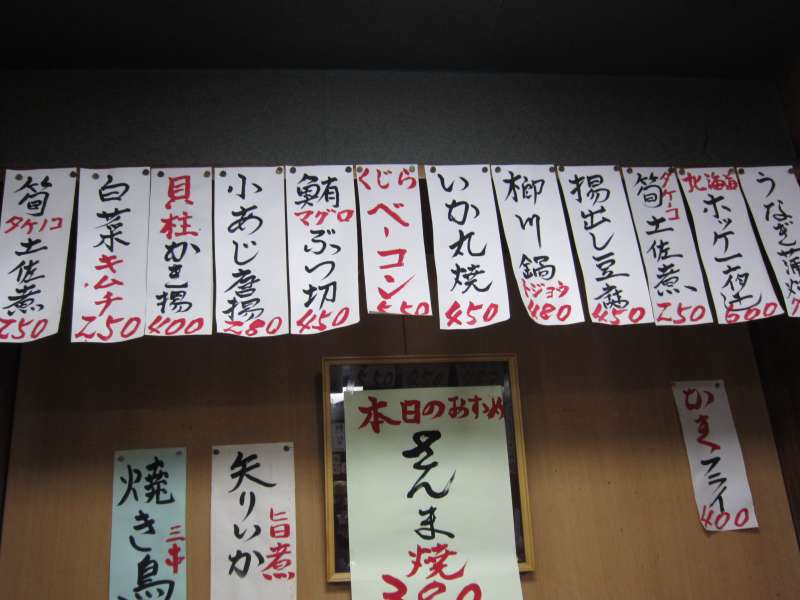 筍タケノコ土佐煮
250
白菜キムチ
250
貝柱かき揚
400
小あじ唐揚
280
鮪マグロぶつ切
450
くじらベーコン
550
いか丸焼
450
柳川鍋
ドジョウ
480
揚出し豆腐
450
筍タケコ土佐煮
250
北海道
ホッケ一夜干
600
うなぎ蒲焼
焼き鳥
三串
矢りいか
旨煮
本日のおすすめ
さんま焼
380
かきフライ
400